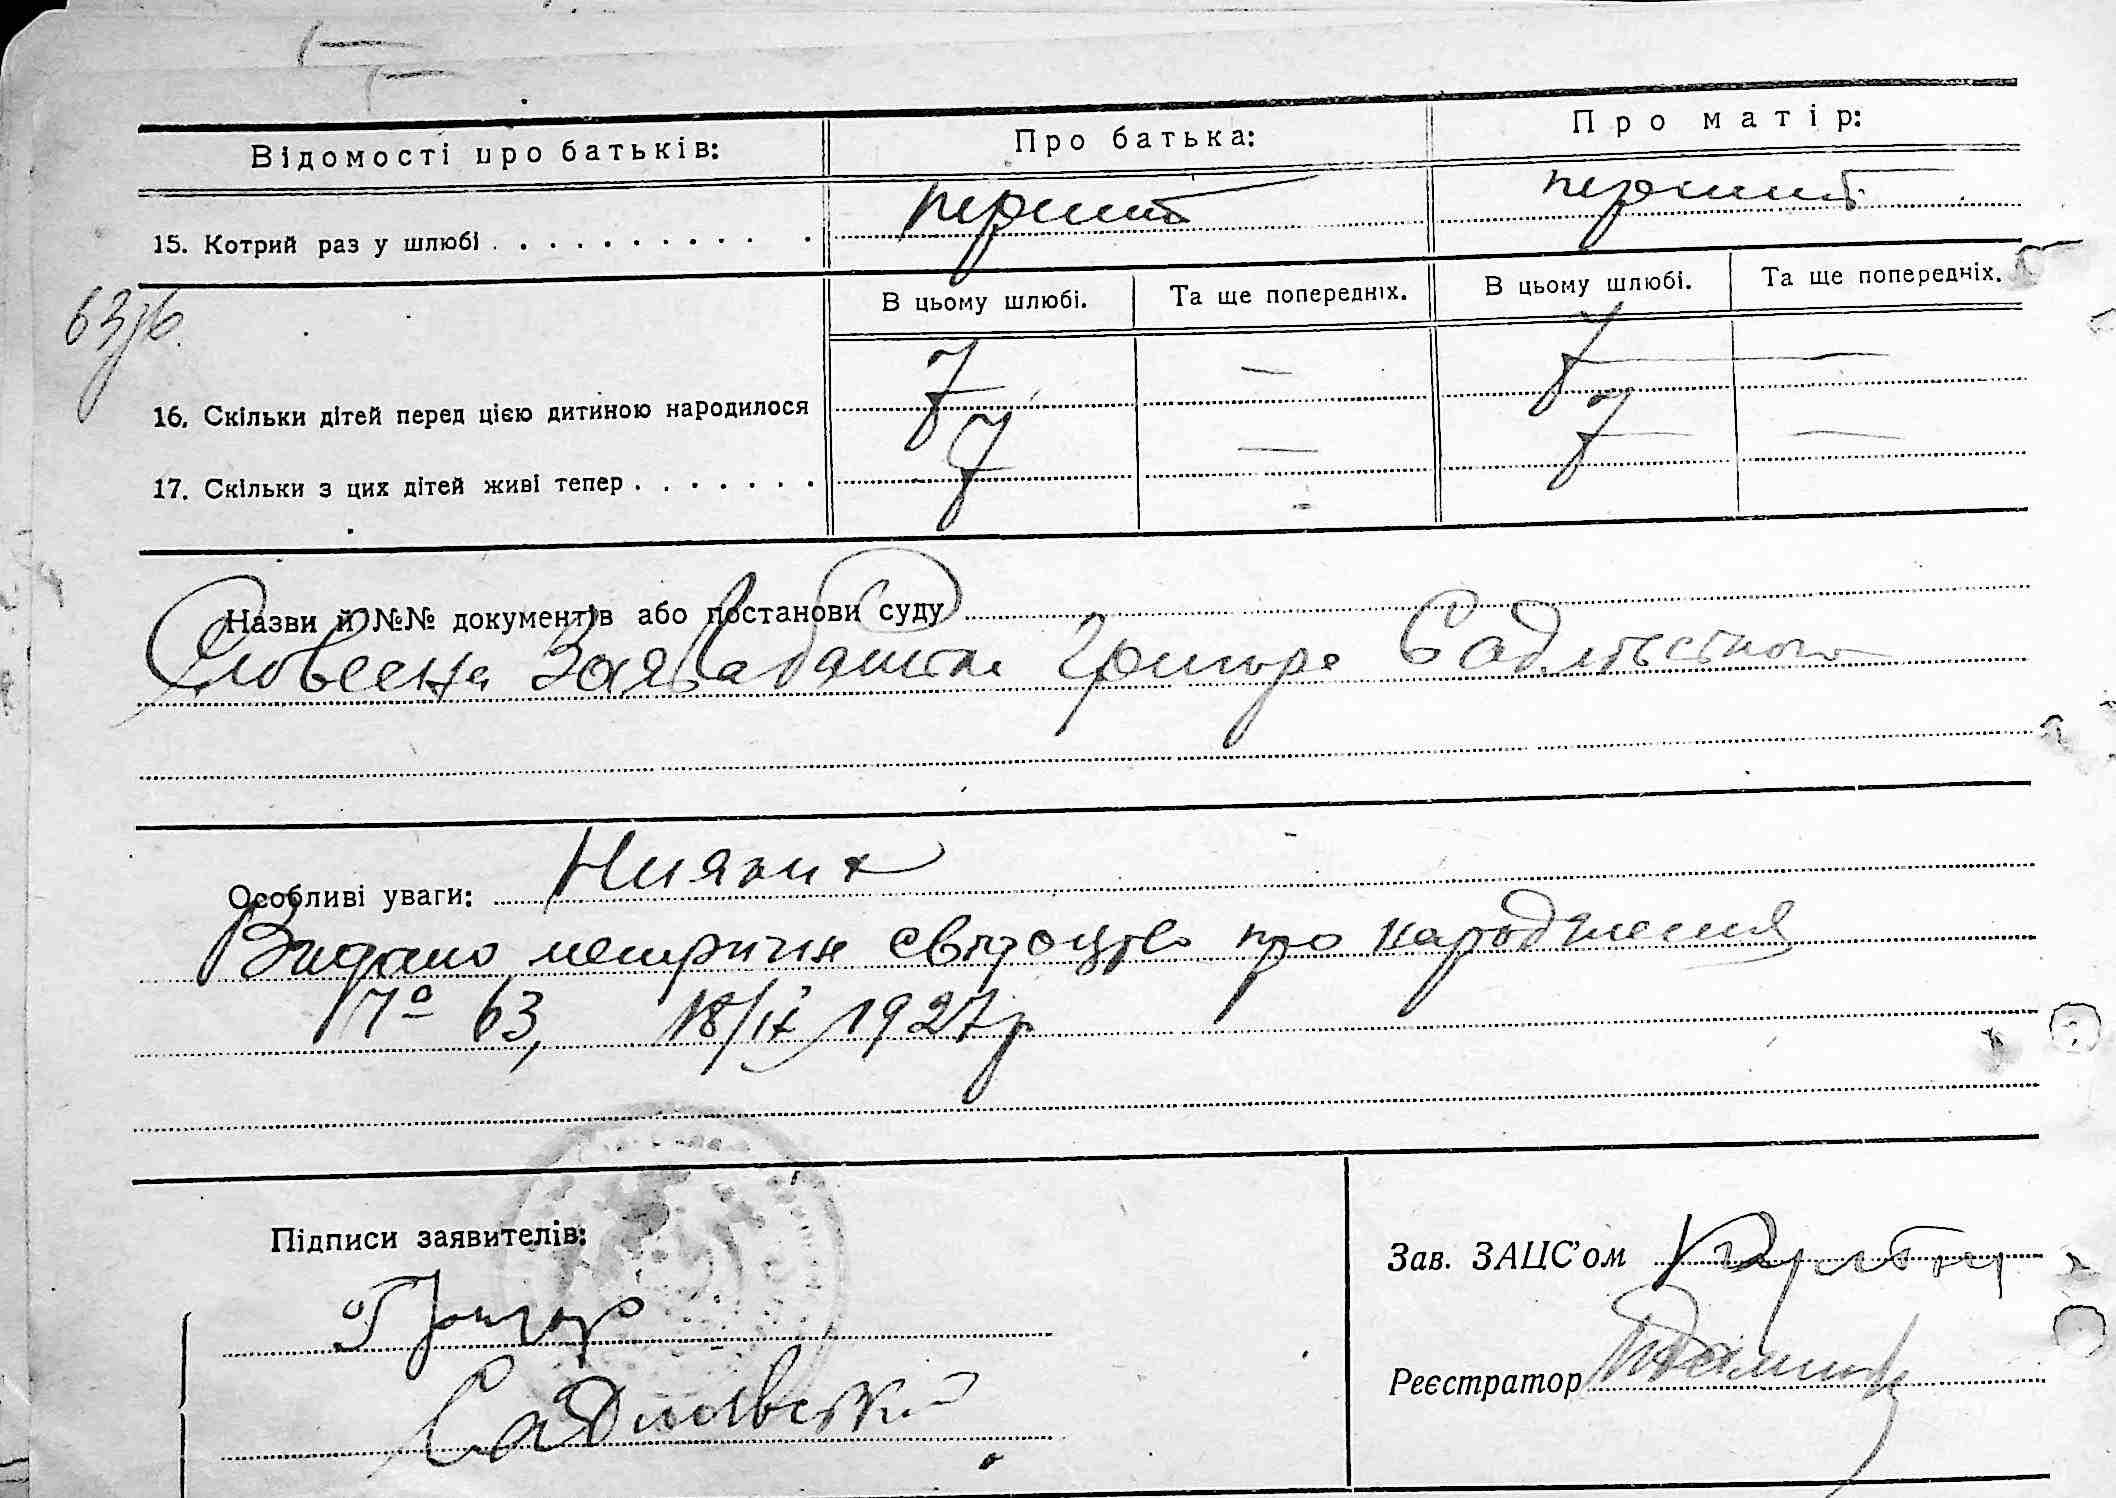 Відомості про батьків: Про батька: Про матір:
15. Котрий раз у шлюбі . . . . . . . . . . . перший перший
63
В цьому шлюбі. Та ще попередніх. В цьому шлюбі. Та ще попередніх.
16. Скільки дітей перед цією дитиною народилося 7 — 7 —
17. Скільки з цих дітей живі тепер . . . . . . . 7 — 7 —
Назви й №№ документів або постанови суду
Словесна Заява батька Григора
Особливі уваги: Ніяких
Видано метричне свідоцтво про народження
№ 63, 18/IX 1927 р
Підписи заявителів:
Григор
Зав. ЗАЦС'ом
Реєстратор